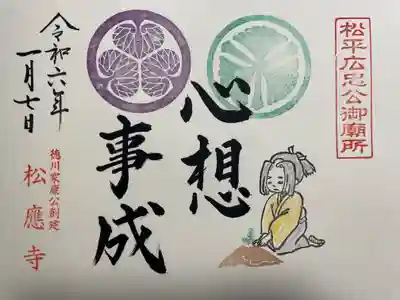 松平広忠公御廟所
心想
事成
令和六年
一月七日
徳川家康公創建
松應寺